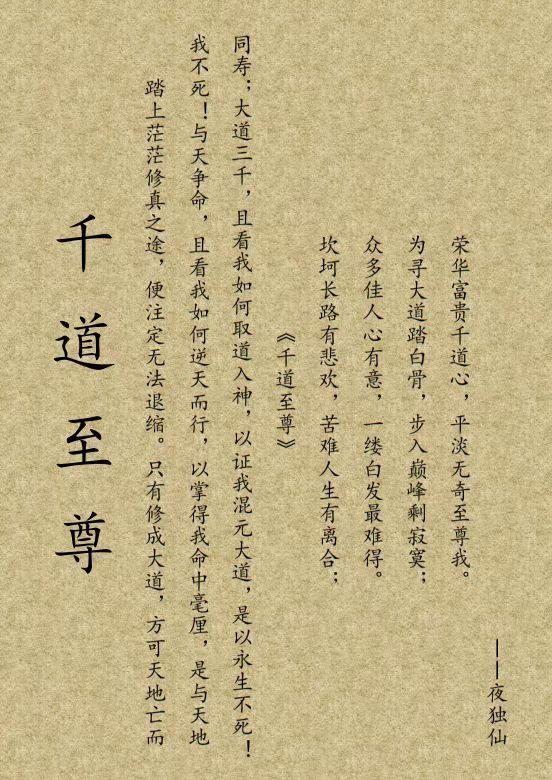 千道至尊
踏上茫茫修真之途，便注定无法退缩。只有修成大道，方可天地亡而
我不死！与天争命，且看我如何逆天而行，以掌得我命中毫厘，是与天地
同寿；大道三千，且看我如何取道入神，以证我混元大道，是以永生不死！
《千道至尊》
坎坷长路有悲欢，苦难人生有离合；
众多佳人心有意，一缕白发最难得。
为寻大道踏白骨，步入巅峰剩寂寞；
荣华富贵千道心，平淡无奇至尊我。
——夜独仙